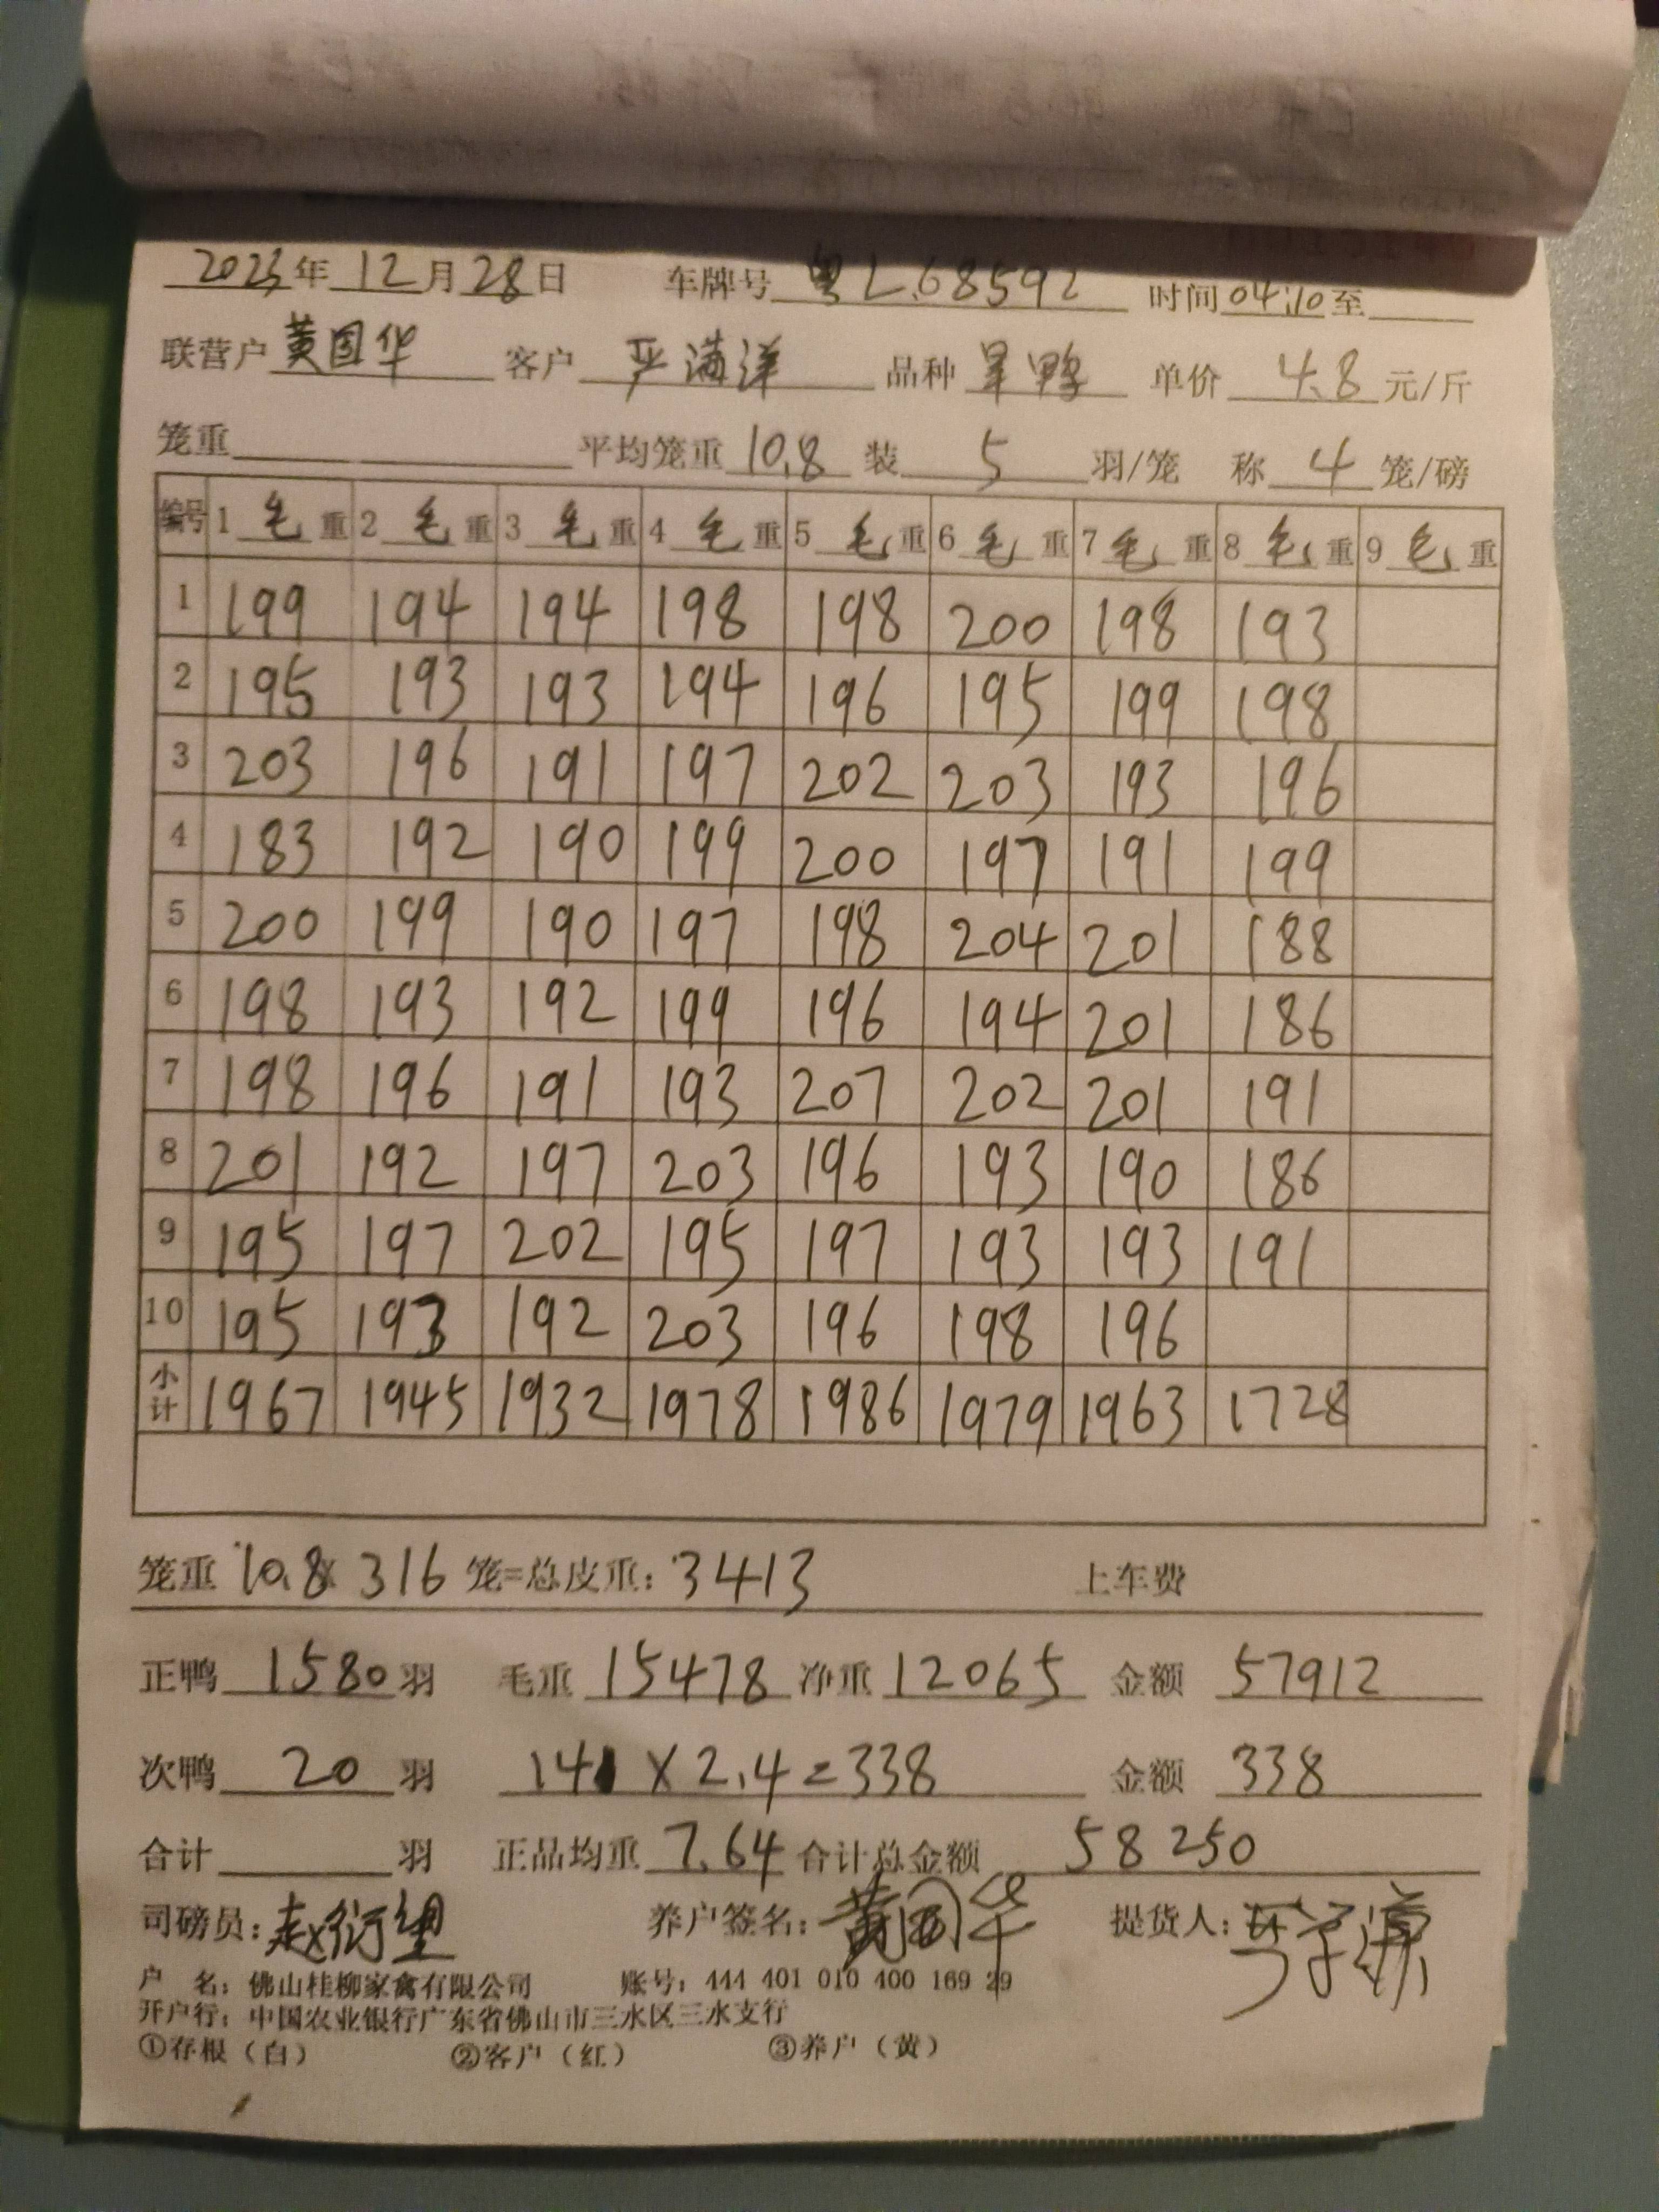 2025年12月28日 车牌号 粤L.68592 时间04:10至
联营户 黄国华 客户 严满洋 品种 旱鸭 单价 4.8 元/斤
笼重 平均笼重 10.8 装 5 羽/笼 称 4 笼/磅
编号 1 毛 重 2 毛 重 3 毛 重 4 毛 重 5 毛 重 6 毛 重 7 毛 重 8 毛 重 9 毛 重
1 199 194 194 198 198 200 198 193
2 195 193 193 194 196 195 199 198
3 203 196 191 197 202 203 193 196
4 183 192 190 199 200 197 191 199
5 200 199 190 197 198 204 201 188
6 198 193 192 199 196 194 201 186
7 198 196 191 193 207 202 201 191
8 201 192 197 203 196 193 190 186
9 195 197 202 195 197 193 193 191
10 195 193 192 203 196 198 196
小计 1967 1945 1932 1978 1986 1979 1963 1728
笼重 10.8x 316 笼=总皮重: 3413 上车费
正鸭 1580 羽 毛重 15478 净重 12065 金额 57912
次鸭 20 羽 141 x 2.4=338 金额 338
合计 羽 正品均重 7.64 合计总金额 58250
司磅员: 养户签名: 黄国华 提货人:
户 名: 佛山桂柳家禽有限公司 账号: 444 401 010 400 169 29
开户行: 中国农业银行广东省佛山市三水区三水支行
①存根（白） ②客户（红） ③养户（黄）